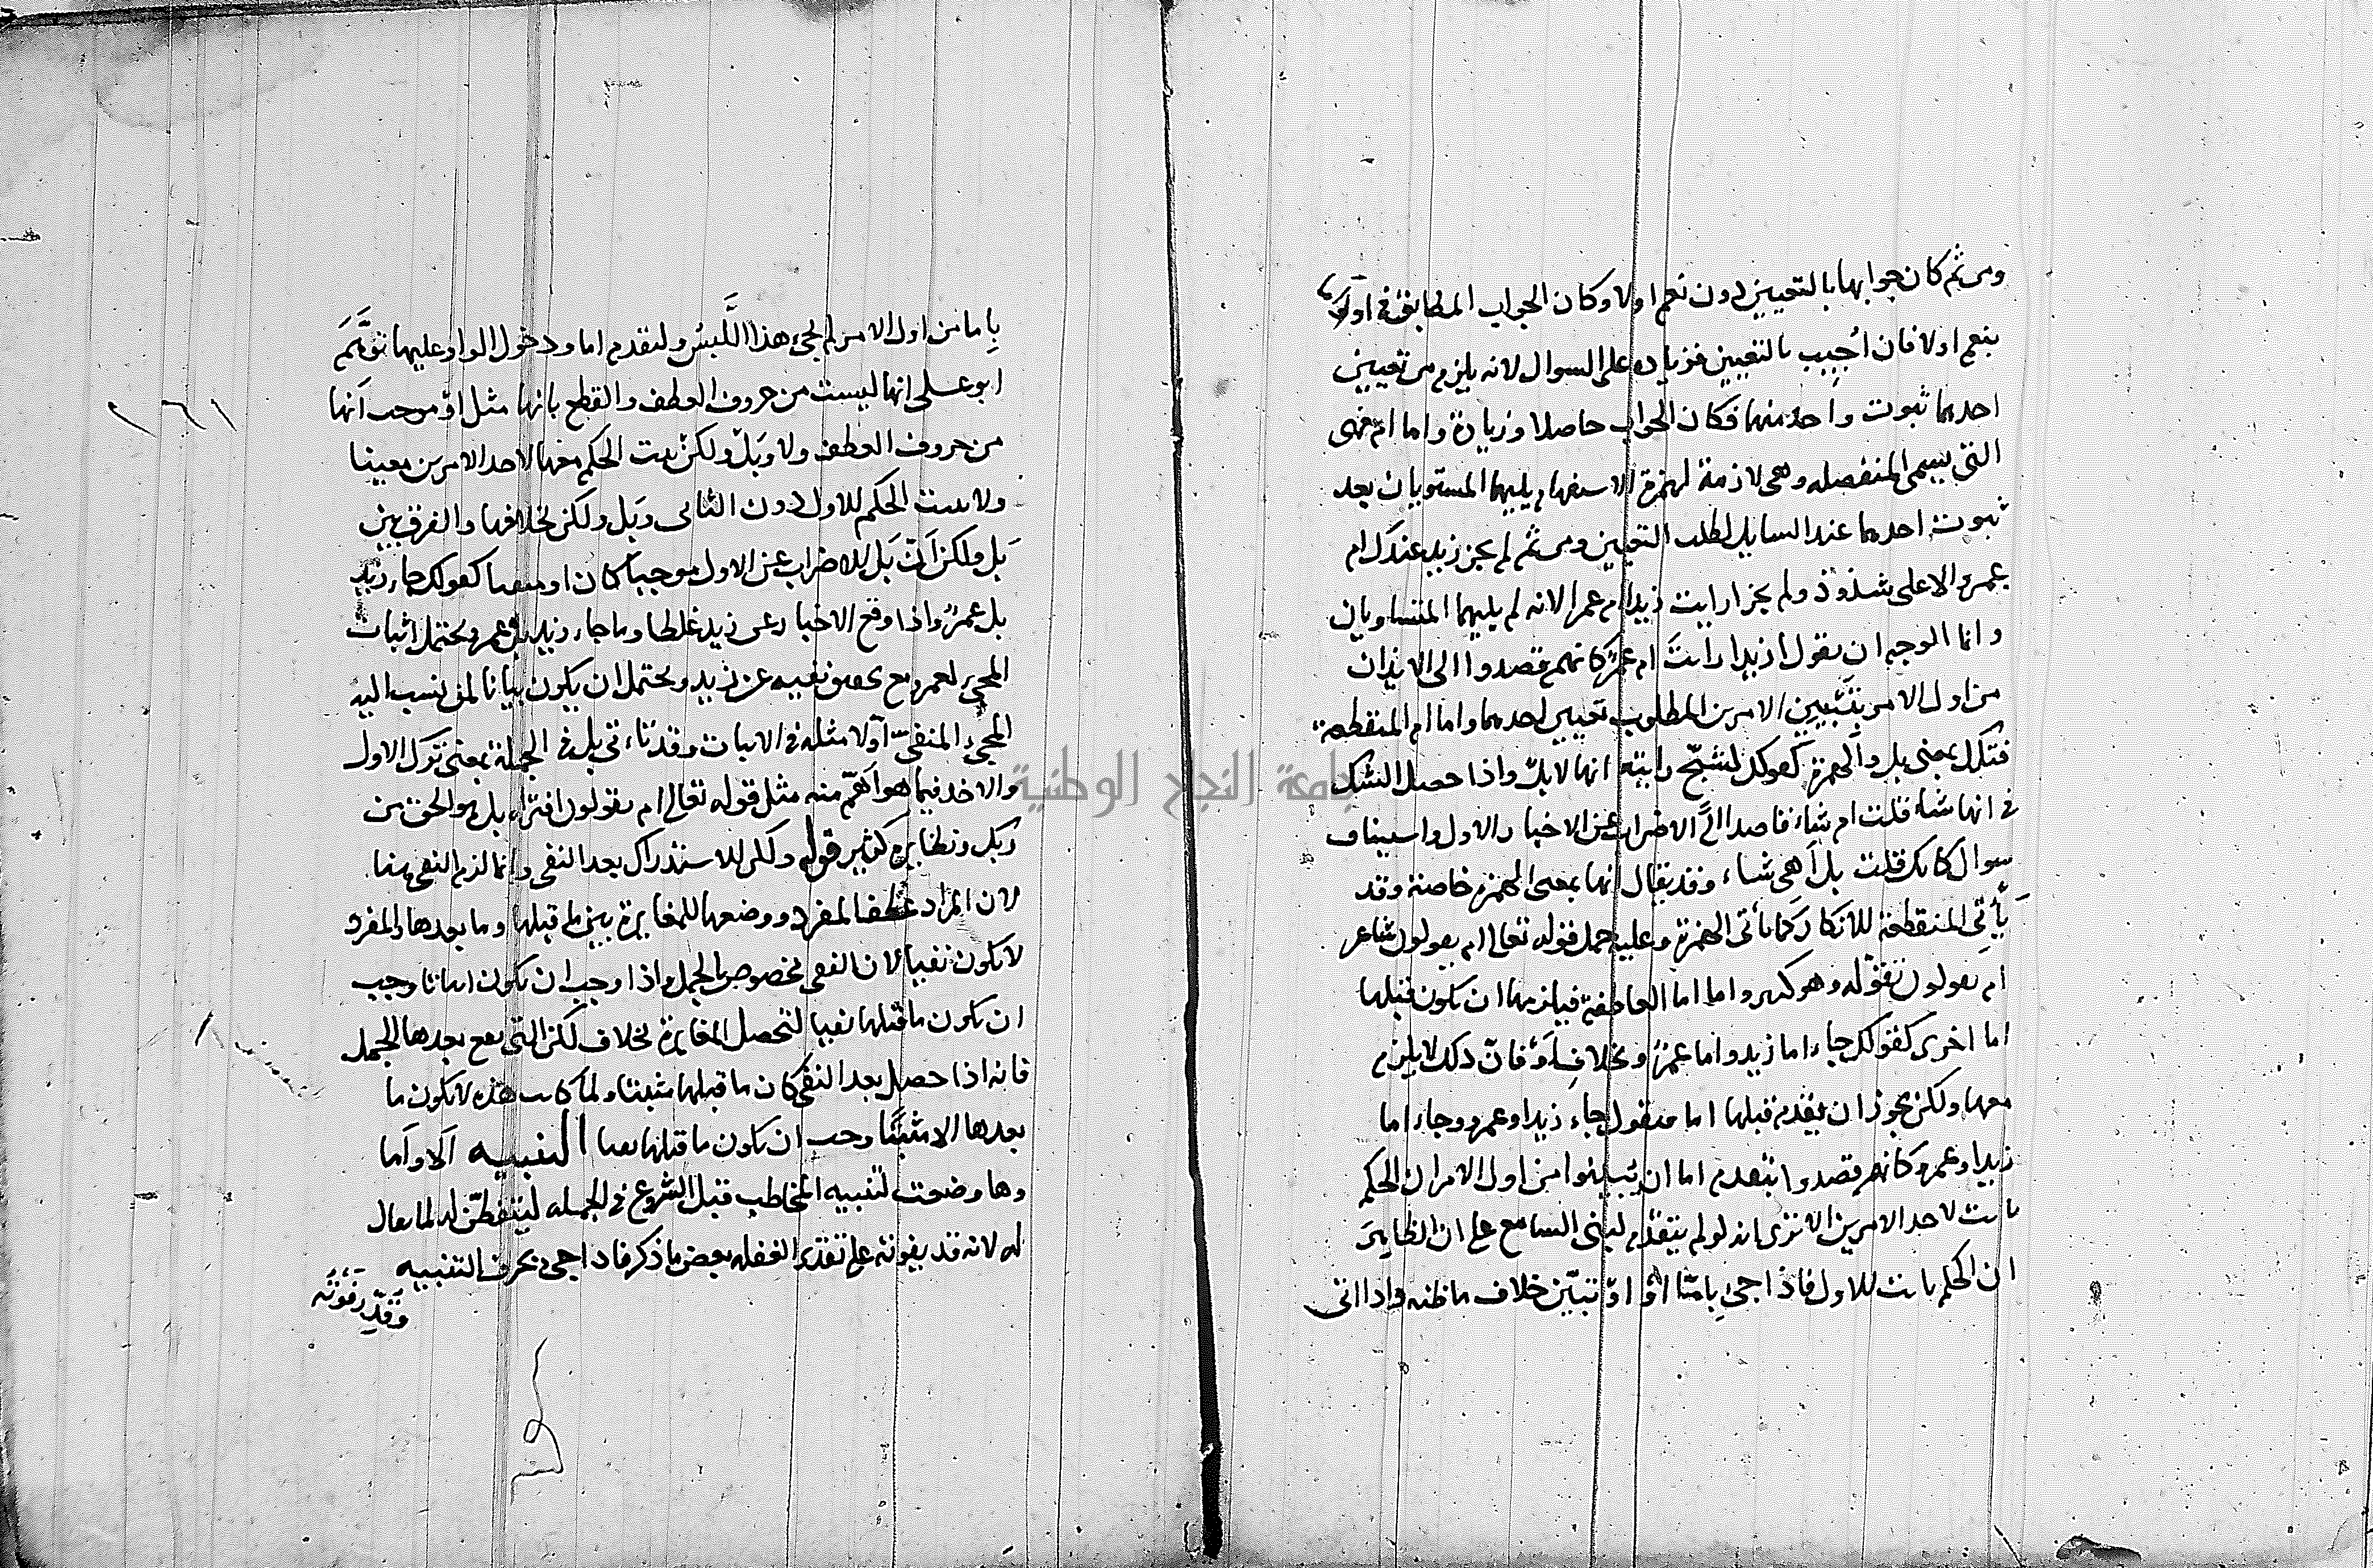 ومن ثم كان جوابها بالتعيين دون نعم او لا وكان الجواب المطابق في او
بنعم او لا فان اُجيب بالتعيين فزياده على السوال لانه يلزم من تعيين
احدهما ثبوت واحد منهما فكان الجواب حاصلا وزيادة واما ام فهي
التي يسمى المنفصله وهي لازمة لهمزة الاستفهام يليها المستويان بعد
ثبوت احدهما عند السايل لطلب التعيين ومن ثم لم يجز زيد عندك ام
عمرو الا على شذوذ ولم يجز ارايت زيدا ام عمرا لانه لم يليهما المتساويان
وانما الوجه ان يقول ازيدا رايت ام عمرا كانهم قصدوا الى الايذان
من اول الامر بتبيين الامرين المطلوب تعيين احدهما واما ام المنقطعة
فتكل بمعنى بل والهمزة كقولك لشبح رايته انها لابل واذا حصل الشك
في انها شاء قلت ام شاء قاصدا الى الاضراب عن الاخبار الاول واستيناف
سوال كانك قلت بل اهي شاء وقد يقال انها بمعنى الهمزة خاصة وقد
يأتي المنقطعة للانكار كما ياتي الهمزة وعليه حمل قوله تعالى ام يقولون شاعر
ام يقولون تقوّله وهو كثير واما اما العاطفة فيلزمها ان يكون قبلها
اما اخرى كقولك جاء اما زيد واما عمرو بخلاف اَوْ فانّ ذلك لا يلزم
معها ولكن يجوز ان يقدم قبلها اما فيقول جاء زيد او عمرو وجاء اما
زيد او عمرو كانهم قصدوا بتقدم اما ان يُبيّنوا من اول الامر ان الحكم
ثابت لاحد الامرين الا ترى انه لو لم يتقدم لبنى السامع على ان الظاهر
ان الحكم ثابت للاول فاذا جئ بامّا او اوْ تبيّن خلاف ما ظنه واذا اتى
١٦١
بِاما من اول الامر لم يجئ هذا اللَّبس ولتقدم اما ودخول الواو عليها توهَّمَ
ابو على انها ليست من حروف العطف والقطع بانها مثل اوْ موجب انها
من حروف العطف ولا وبَلْ ولكنْ يثبت الحكم معها لاحد الامرين معينا
ولا يثبت الحكم للاول دون الثاني وبل ولكن بخلافها والفرق بين
بَل ولكن اَنّ بَل للاضراب عن الاول موجبا كان او منفيا كقولك جاء زيد
بل عمرو اذا وقع الاخبار عن زيد غلطا وما جاء زيد بل عمرو يحتمل اثبات
المجئ لعمرو مع تحقق نفيه عن زيد ويحتمل ان يكون بيانا لمن نسب اليه
المجئ المنفيّ اولا مثله في الاثبات وقد تاتي بل في الجملة بمعنى ترك الاول
والاخذ فيما هو اَهمّ منه مثل قوله تعالى ام يقولون افتراه بل هو الحق من
ربك ونظايره كثير قوله ولكن للاستدراك بعد النفي وانما لزم النفي هنا
لان المراد عطف المفرد ووضعها للمغايرة بين ما قبلها وما بعدها والمفرد
لا يكون نفيا لان النفي مخصوص بالجمل واذا وجب ان يكون اثباتا وجب
ان يكون ما قبلها نفيا لتحصل المغايرة بخلاف لكن التي يقع بعدها الجمل
فانه اذا حصل بعد النفي كان ما قبلها مثبتا ولما كانت هذه لا يكون ما
بعدها الا مثبتًا وجب ان يكون ما قبلها نفيا التنبيه اَلا واَما
وها وضعت لتنبيه المخاطب قبل الشروع في الجمله ليتفطّن له لما يقال
له لانه قد يفوته على تقدير الغفله بعض ما ذكر فاذا جئ بحرف التنبيه
جامعة النجاح الوطنية